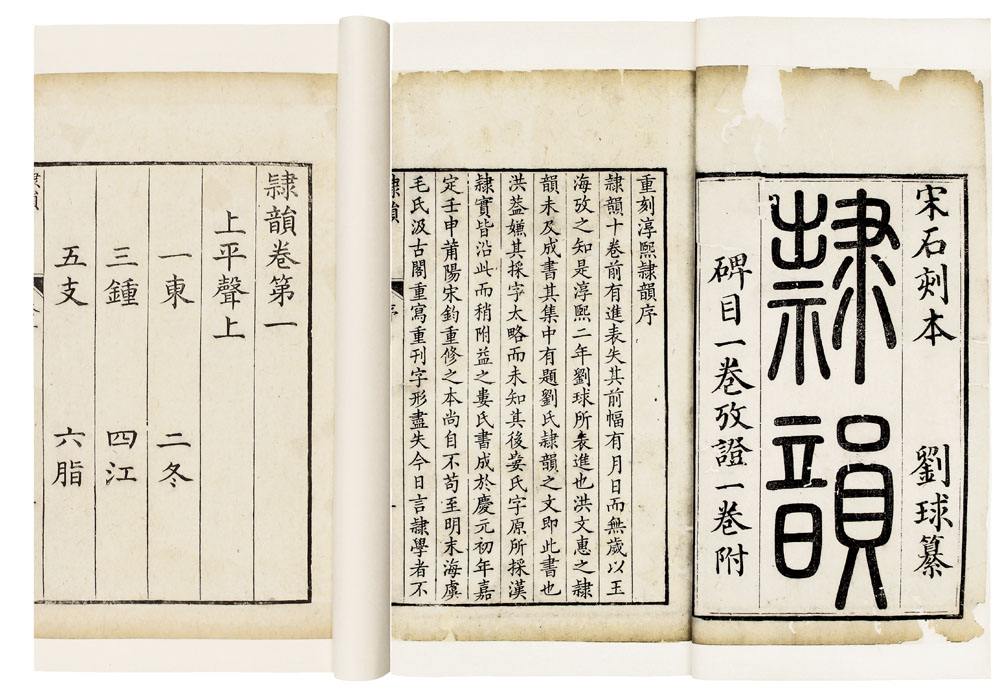 宋石刻本 劉球纂
隷韻
碑目一卷攷證一卷附
重刻淳熙隷韻序
隷韻十卷前有進表失其前幅有月日而無歲以王
海攷之知是淳熙二年劉球所表進也洪文惠之隷
韻未及成書其集中有題劉氏隷韻之文即此書也
洪葢嫌其採字太略而未知其後婁氏字原所採漢
隷實皆沿此而稍附益之婁氏書成於慶元初年嘉
定壬申莆陽宋鈞重修之本尚自不苟至明末海虞
毛氏汲古閣重寫重刊字形盡失今日言隷學者不
隷韻 序 一
隷韻卷第一
上平聲上
一東 二冬
三鍾 四江
五支 六脂
隷韻